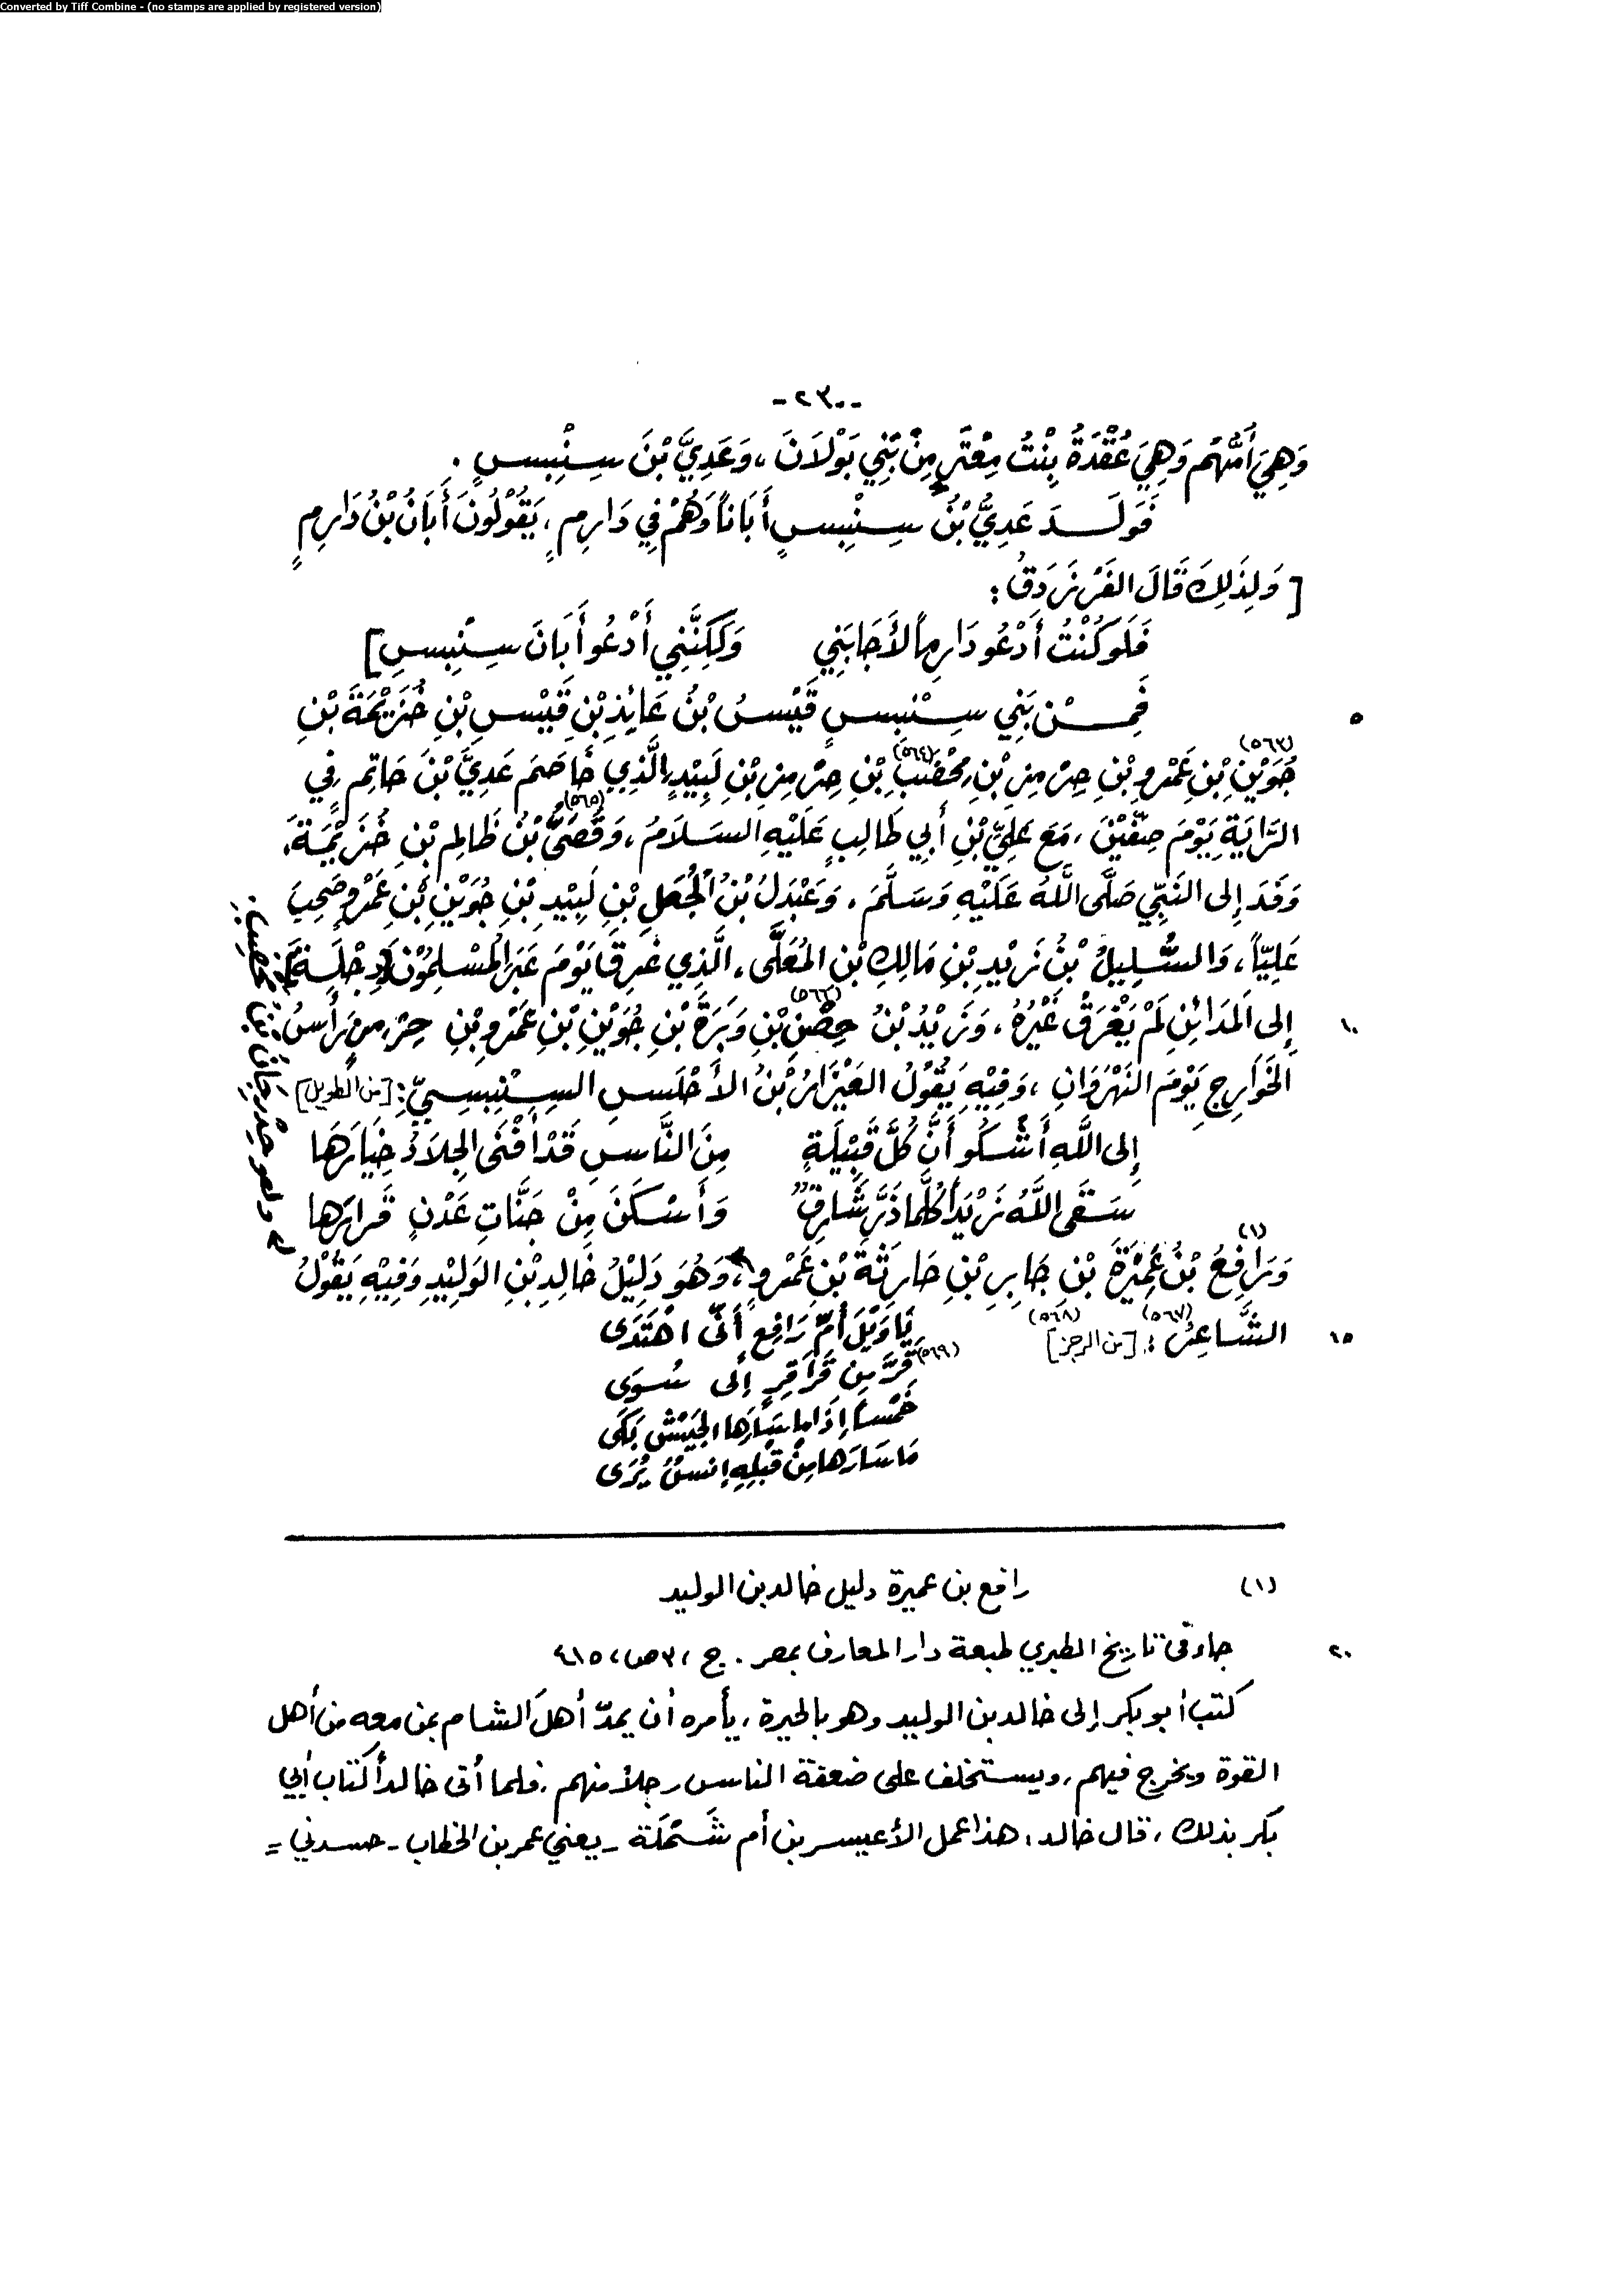 Converted by Tiff Combine - (no stamps are applied by registered version)
-٢٣٠-
وَهِيَ أُمُّهُم وَهِيَ عُقْدَةُ بِنْتُ مِعْتَرٍ مِنْ بَنِي بَوْلَانَ، وَعَدِيَّ بْنَ سِنْبِسٍ.
فَوَلَدَ عَدِيُّ بْنُ سِنْبِسٍ أَبَاناً وَهُمْ فِي دَارِمٍ، يَقُوْلُونَ أَبَانُ بْنُ دَارِمٍ
[ وَلِذَلِكَ قَالَ الفَرَزْدَقُ:
فَلَو كُنْتُ أَدْعُو دَارِماً لأَجَابَنِي وَلَكِنَّنِي أَدْعُو أَبَانَ سِنْبِسِ]
فَمِنْ بَنِي سِنْبِسٍ قَيْسُ بْنُ عَائِذِ بْنِ قَيْسِ بْنِ خُزَيْمَةَ بْنِ ٥
(٥٦٣)
جُوَيْنِ بْنِ عَمْرِو بْنِ حِرْمِزِ بْنِ مُحْضَبِ (٥٦٤) بْنِ حِرْمِزِ بْنِ لَبِيْدٍ الَّذِي خَاصَمَ عَدِيَّ بْنَ حَاتِمٍ فِي
الرَّايَةِ يَوْمَ صِفِّيْنَ، مَعَ عَلِيِّ بْنِ أَبِي طَالِبٍ عَلَيْهِ السَلَامُ، وَقُصَيُّ (٥٦٥) بْنُ ظَالِمِ بْنِ خُزَيْمَةَ،
وَفَدَ إِلى النَبِيِّ صَلَّى اللَّهُ عَلَيْهِ وَسَلَّمَ، وَعَبْدَلُ بْنُ الْجُعَلِ بْنِ لَبِيْدِ بْنِ جُوَيْنِ بْنِ عَمْرٍو صَحِبَ
عَلِيّاً، وَالسَّلِيلُ بْنُ زَيْدِ بْنِ مَالِكِ بْنِ المُعَلَّى، الَّذِي غَرِقَ يَوْمَ عَبَرَ المُسْلِمُوْنَ دِجْلَةَ
إِلى المَدَائِنِ لَمْ يَغْرَقْ غَيْرُهُ، وَزَيْدُ بْنُ حِصْنِ (٥٦٦) بْنِ وَبَرَةَ بْنِ جُوَيْنِ بْنِ عَمْرِو بْنِ حِرْمِزٍ رَأْسُ ١٠
الخَوَارِجِ يَوْمَ النَهْرَوَانِ، وَفِيْهِ يَقُوْلُ العَيْزَارُ بْنُ الأَخْنَسِ السِنْبِسِيُّ: [من الطويل]
إِلى اللَّهِ أَشْكُو أَنَّ كُلَّ قَبِيْلَةٍ مِنَ النَّاسِ قَدْ أَفْنَى الجِلَادُ خِيَارَهَا
سَقَى اللَّهُ زَيْداً كُلَّمَا ذَرَّ شَارِقٌ وَأَسْكَنَ مِنْ جَنَّاتِ عَدْنٍ قَرَارَها
(١)
وَرَافِعُ بْنُ عَمِيْرَةَ بْنِ جَابِرِ بْنِ حَارِثَةَ بْنِ عَمْرٍو، وَهُوَ دَلِيْلُ خَالِدِ بْنِ الوَلِيْدِ وَفِيْهِ يَقُوْلُ
الشَّاعِرُ (٥٦٧): [من الرجز] (٥٦٨) يَا وَيْلَ أُمِّ رَافِعٍ أَنَّى اهْتَدَى ١٥
(٥٦٩) فَوَّزَ مِنْ قَرَاقِرٍ إِلَى سُوَى
خَمْساً إِذَا ما سَارَها الجَيْشُ بَكَى
مَا سَارَهَا مِنْ قَبْلِهِ إِنسٌ يُرَى
(١) رافع بن عميرة دليل خالد بن الوليد
جاء في تاريخ الطبري طبعة دار المعارف بمصر. ج، ٣ ص، ٤١٥ ٢٠
كتب أبو بكر إلى خالد بن الوليد وهو بالحيرة، يأمره أن يمدّ أهل الشام بمن معه من أهل
القوة ويخرج فيهم، ويستخلف على ضعفة الناس رجلاً منهم، فلما أتى خالداً كتاب أبي
بكر بذلك، قال خالد: هذا عمل الأعيسر بن أم شَمْلَة - يعني عمر بن الخطاب - حسدني =